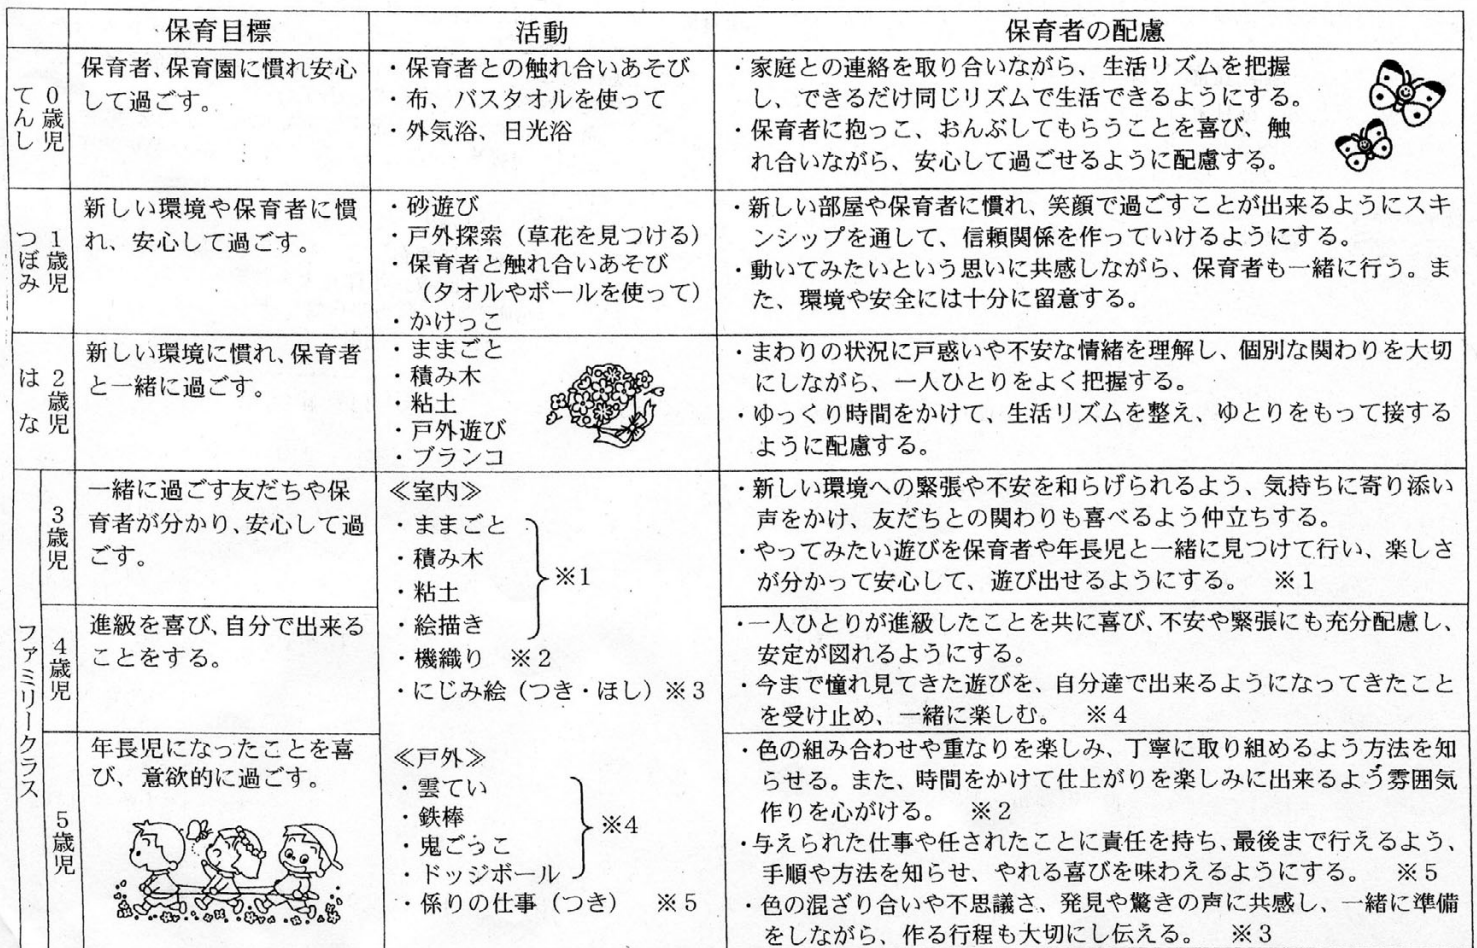 保育目標
活動
保育者の配慮
0歳児
てんし
保育者、保育園に慣れ安心
して過ごす。
・保育者との触れ合いあそび
・布、バスタオルを使って
・外気浴、日光浴
・家庭との連絡を取り合いながら、生活リズムを把握
し、できるだけ同じリズムで生活できるようにする。
・保育者に抱っこ、おんぶしてもらうことを喜び、触
れ合いながら、安心して過ごせるように配慮する。
1歳児
つぼみ
新しい環境や保育者に慣
れ、安心して過ごす。
・砂遊び
・戸外探索（草花を見つける）
・保育者と触れ合いあそび
（タオルやボールを使って）
・かけっこ
・新しい部屋や保育者に慣れ、笑顔で過ごすことが出来るようにスキ
ンシップを通して、信頼関係を作っていけるようにする。
・動いてみたいという思いに共感しながら、保育者も一緒に行う。ま
た、環境や安全には十分に留意する。
2歳児
はな
新しい環境に慣れ、保育者
と一緒に過ごす。
・ままごと
・積み木
・粘土
・戸外遊び
・ブランコ
・まわりの状況に戸惑いや不安な情緒を理解し、個別な関わりを大切
にしながら、一人ひとりをよく把握する。
・ゆっくり時間をかけて、生活リズムを整え、ゆとりをもって接する
ように配慮する。
ファミリークラス
3歳児
一緒に過ごす友だちや保
育者が分かり、安心して過
ごす。
≪室内≫
・ままごと
・積み木
・粘土
・絵描き
※1
・機織り　※2
・にじみ絵（つき・ほし）※3
・新しい環境への緊張や不安を和らげられるよう、気持ちに寄り添い
声をかけ、友だちとの関わりも喜べるよう仲立ちする。
・やってみたい遊びを保育者や年長児と一緒に見つけて行い、楽しさ
が分かって安心して、遊び出せるようにする。　※1
4歳児
進級を喜び、自分で出来る
ことをする。
・一人ひとりが進級したことを共に喜び、不安や緊張にも充分配慮し、
安定が図れるようにする。
・今まで憧れ見てきた遊びを、自分達で出来るようになってきたこと
を受け止め、一緒に楽しむ。　※4
5歳児
年長児になったことを喜
び、意欲的に過ごす。
≪戸外≫
・雲てい
・鉄棒
・鬼ごっこ
・ドッジボール
※4
・係りの仕事（つき）　※5
・色の組み合わせや重なりを楽しみ、丁寧に取り組めるよう方法を知
らせる。また、時間をかけて仕上がりを楽しみに出来るよう雰囲気
作りを心がける。　※2
・与えられた仕事や任されたことに責任を持ち、最後まで行えるよう、
手順や方法を知らせ、やれる喜びを味わえるようにする。　※5
・色の混ざり合いや不思議さ、発見や驚きの声に共感し、一緒に準備
をしながら、作る行程も大切にし伝える。　※3